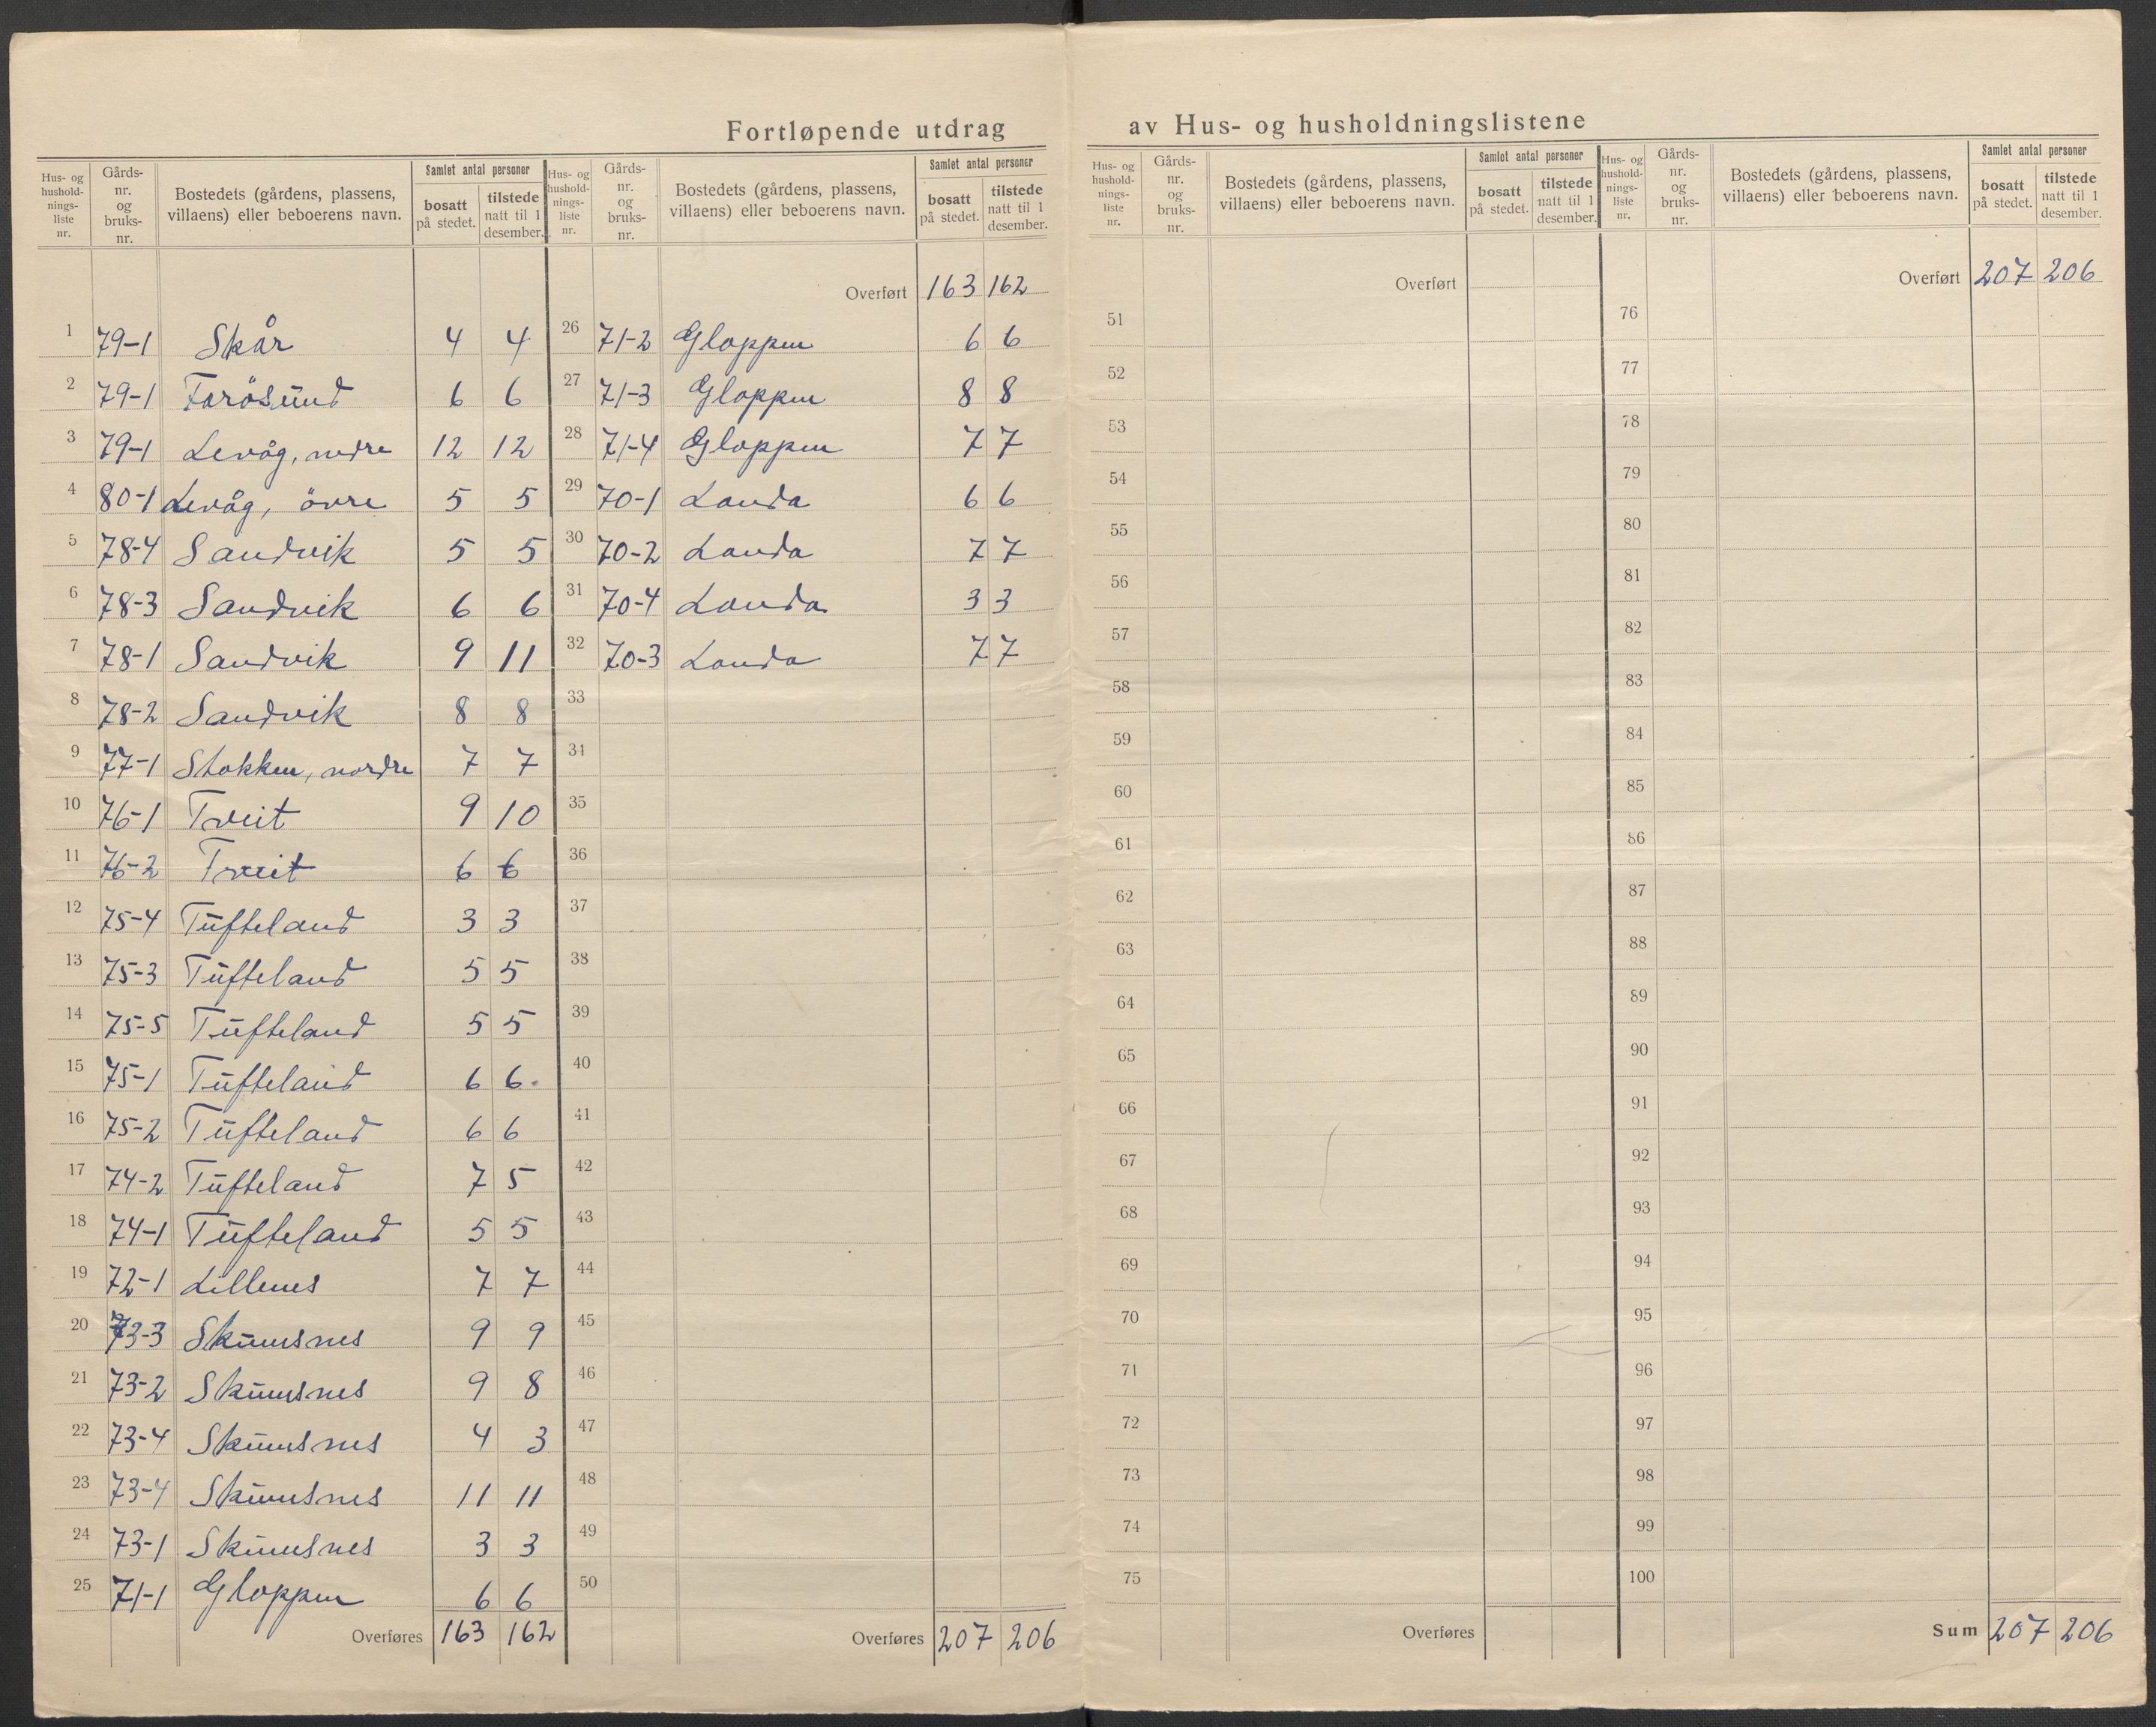 Fortløpende utdrag av Hus- og husholdningslistene
Hus- og hushold- nings- liste nr. | Gårds- nr. og bruks- nr. | Bostedets (gårdens, plassens, villaens) eller beboerens navn. | Samlet antal personer | bosatt på stedet. | tilstede natt til 1 desember.
1 79-1 Skår 4 4
2 79-1 Farösund 6 6
3 79-1 Levåg, nedre 12 12
4 80-1 Levåg, övre 5 5
5 78-4 Sandvik 5 5
6 78-3 Sandvik 6 6
7 78-1 Sandvik 9 11
8 78-2 Sandvik 8 8
9 77-1 Stokken, nordre 7 7
10 76-1 Tveit 9 10
11 76-2 Tveit 6 6
12 75-4 Tufteland 3 3
13 75-3 Tufteland 5 5
14 75-5 Tufteland 5 5
15 75-1 Tufteland 6 6
16 75-2 Tufteland 6 6
17 74-2 Tufteland 7 5
18 74-1 Tufteland 5 5
19 72-1 Lillenes 7 7
20 73-3 Skumsnes 9 9
21 73-2 Skumsnes 9 8
22 73-4 Skumsnes 4 3
23 73-4 Skumsnes 11 11
24 73-1 Skumsnes 3 3
25 71-1 Gloppen 6 6
Overføres 163 162
Hus- og hushold- nings- liste nr. | Gårds- nr. og bruks- nr. | Bostedets (gårdens, plassens, villaens) eller beboerens navn. | Samlet antal personer | bosatt på stedet. | tilstede natt til 1 desember.
Overført 163 162
26 71-2 Gloppen 6 6
27 71-3 Gloppen 8 8
28 71-4 Gloppen 7 7
29 70-1 Landa 6 6
30 70-2 Landa 7 7
31 70-4 Landa 3 3
32 70-3 Landa 7 7
33
34
35
36
37
38
39
40
41
42
43
44
45
46
47
48
49
50
Overføres 207 206
Hus- og hushold- nings- liste nr. | Gårds- nr. og bruks- nr. | Bostedets (gårdens, plassens, villaens) eller beboerens navn. | Samlet antal personer | bosatt på stedet. | tilstede natt til 1 desember.
Overført
51
52
53
54
55
56
57
58
59
60
61
62
63
64
65
66
67
68
69
70
71
72
73
74
75
Overføres
Hus- og hushold- nings- liste nr. | Gårds- nr. og bruks- nr. | Bostedets (gårdens, plassens, villaens) eller beboerens navn. | Samlet antal personer | bosatt på stedet. | tilstede natt til 1 desember.
Overført 207 206
76
77
78
79
80
81
82
83
84
85
86
87
88
89
90
91
92
93
94
95
96
97
98
99
100
Sum 207 206